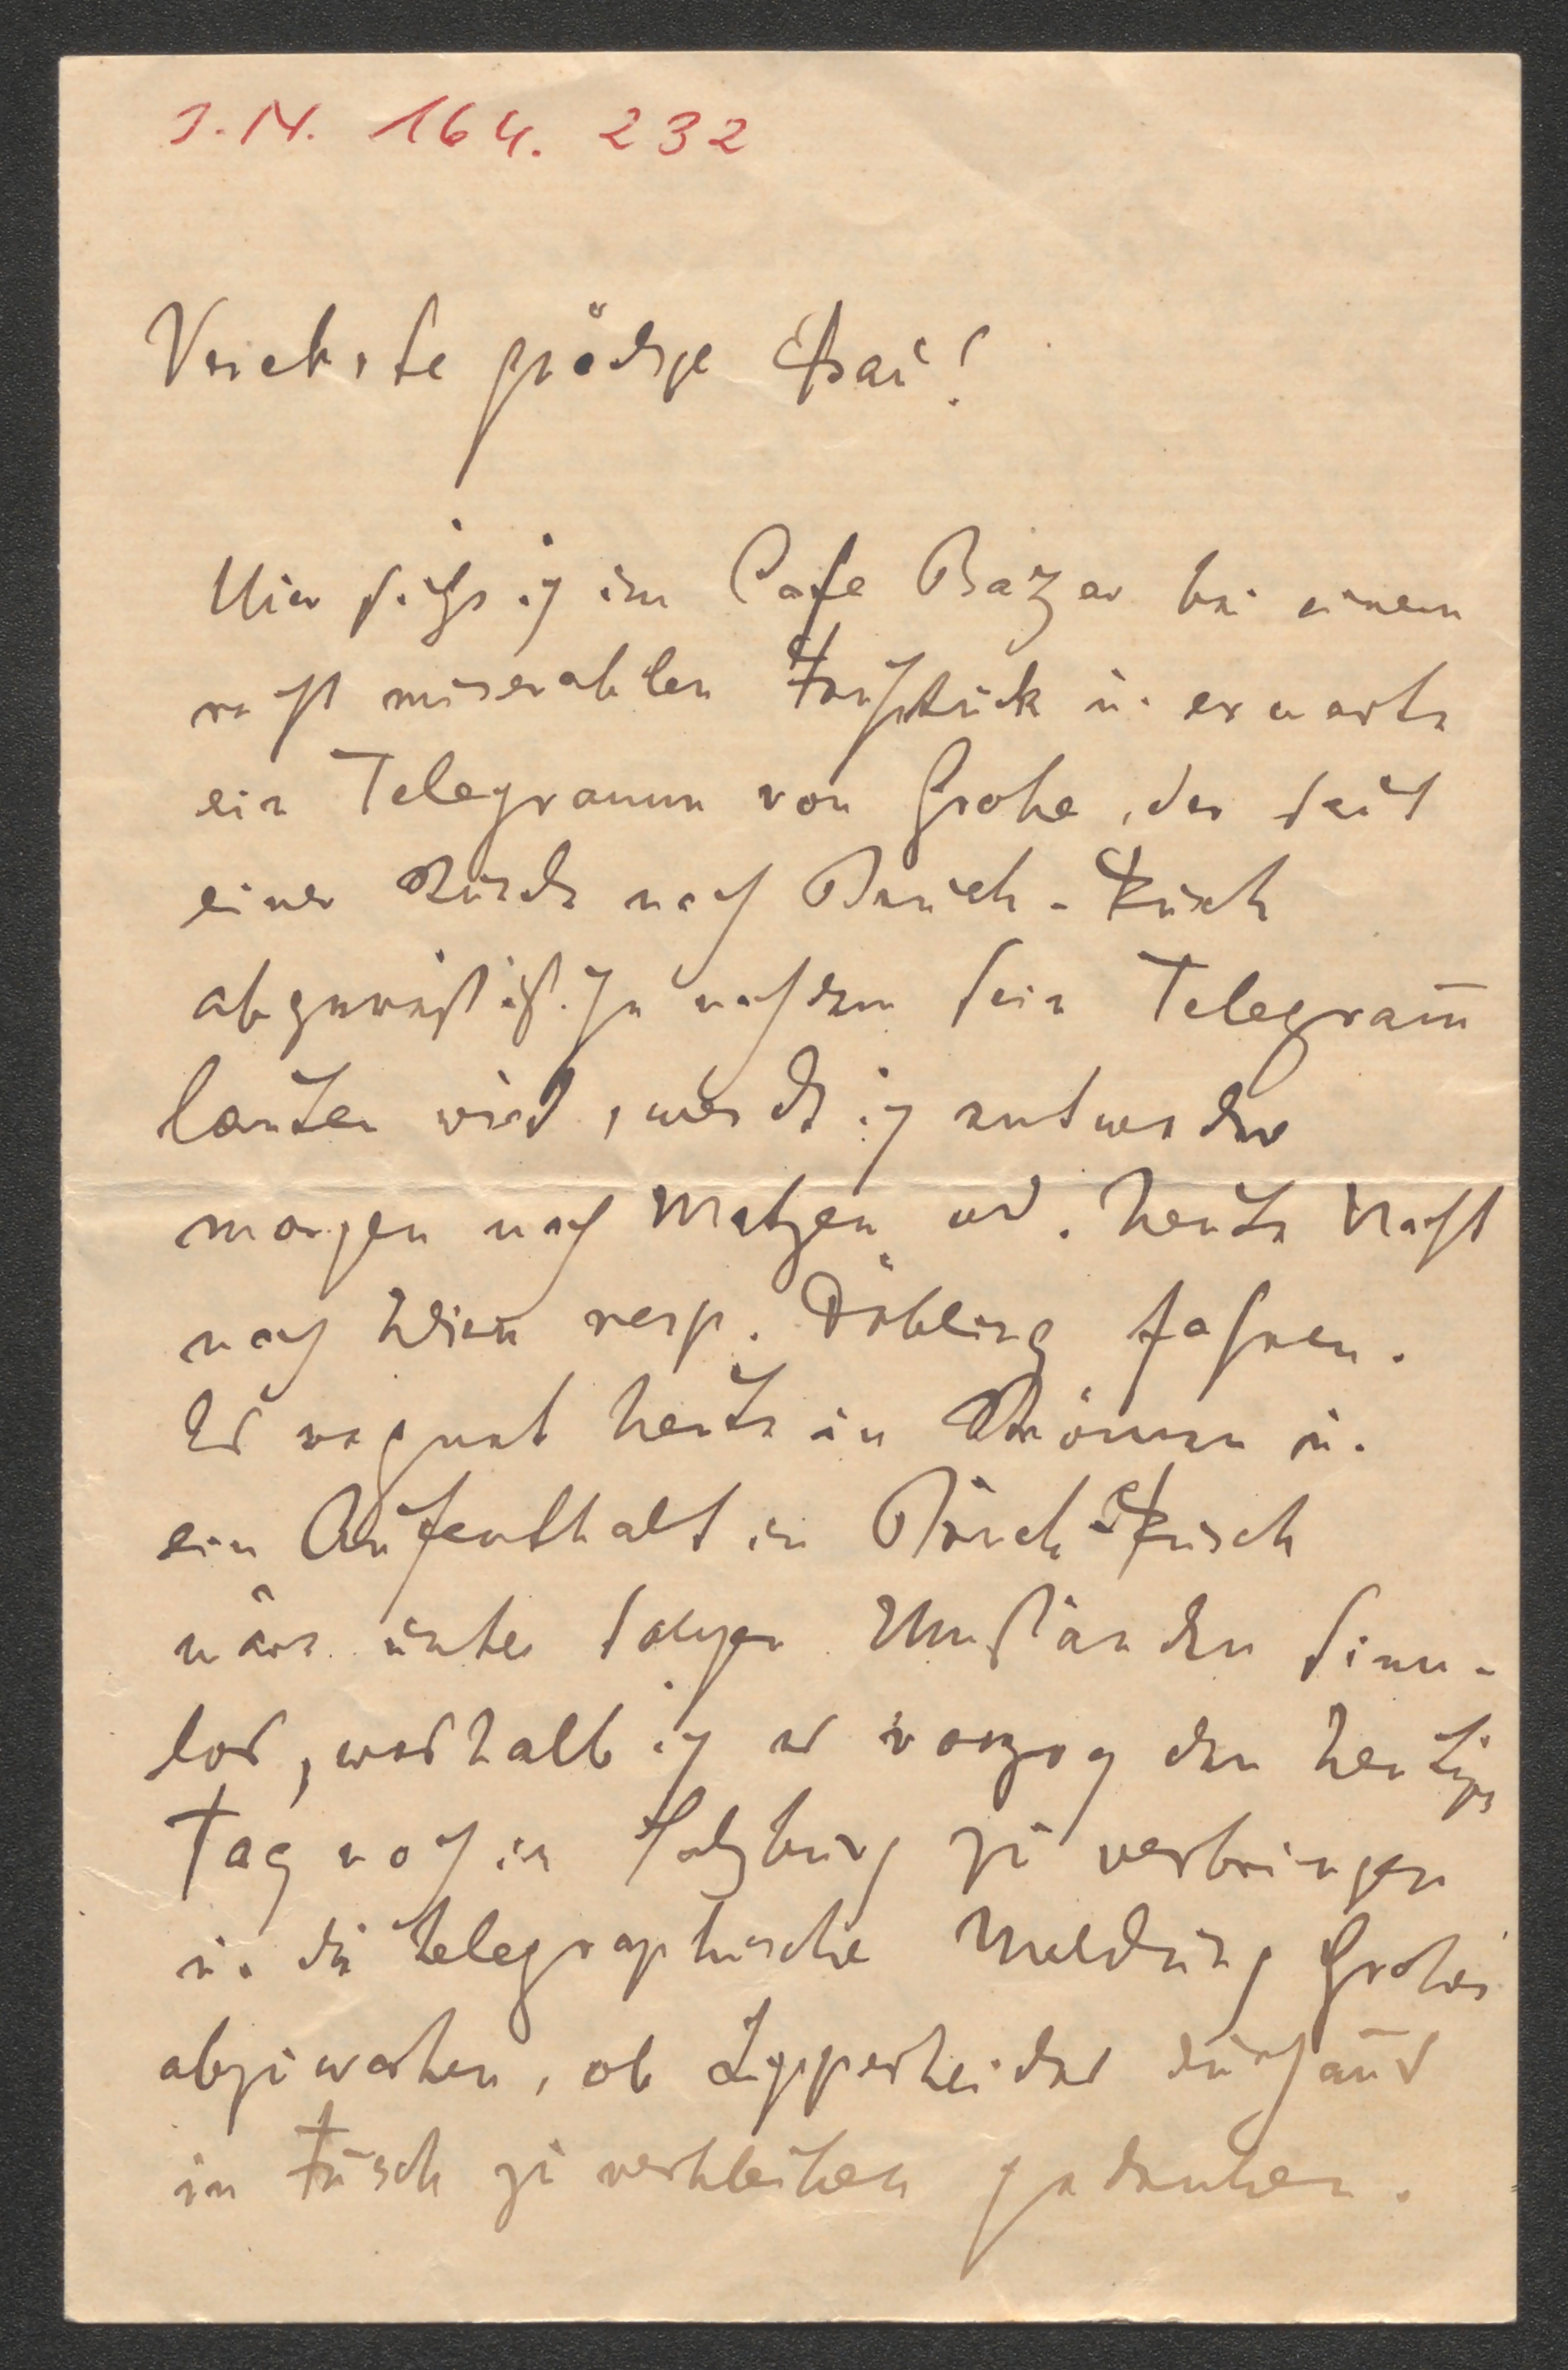 I.N. 164.232
Verehrte gnädige Frau!
Hier sitze ich im Cafe Bazar bei einem
recht miserablen Frühstück u. erwarte
ein Telegramm von Grohe, der seit
einer Stunde nach Bruck-Fusch
abgereist ist. Je nachdem sein Telegram̅
lauten wird, werde ich entweder
morgen nach Matzen od. heute Nacht
nach Wien resp. Döbling fahren.
Es regnet heute in Strömen u.
ein Aufenthalt in Bruck-Fusch
wäre unter solchen Umständen sinn-
los, weshalb ich es vorzog den heutigen
Tag noch in Salzburg zu verbringen
u. die telegraphische Meldung Grohes
abzuwarten, ob Lipperheides durchaus
in Fusch zu verbleiben gedenken.